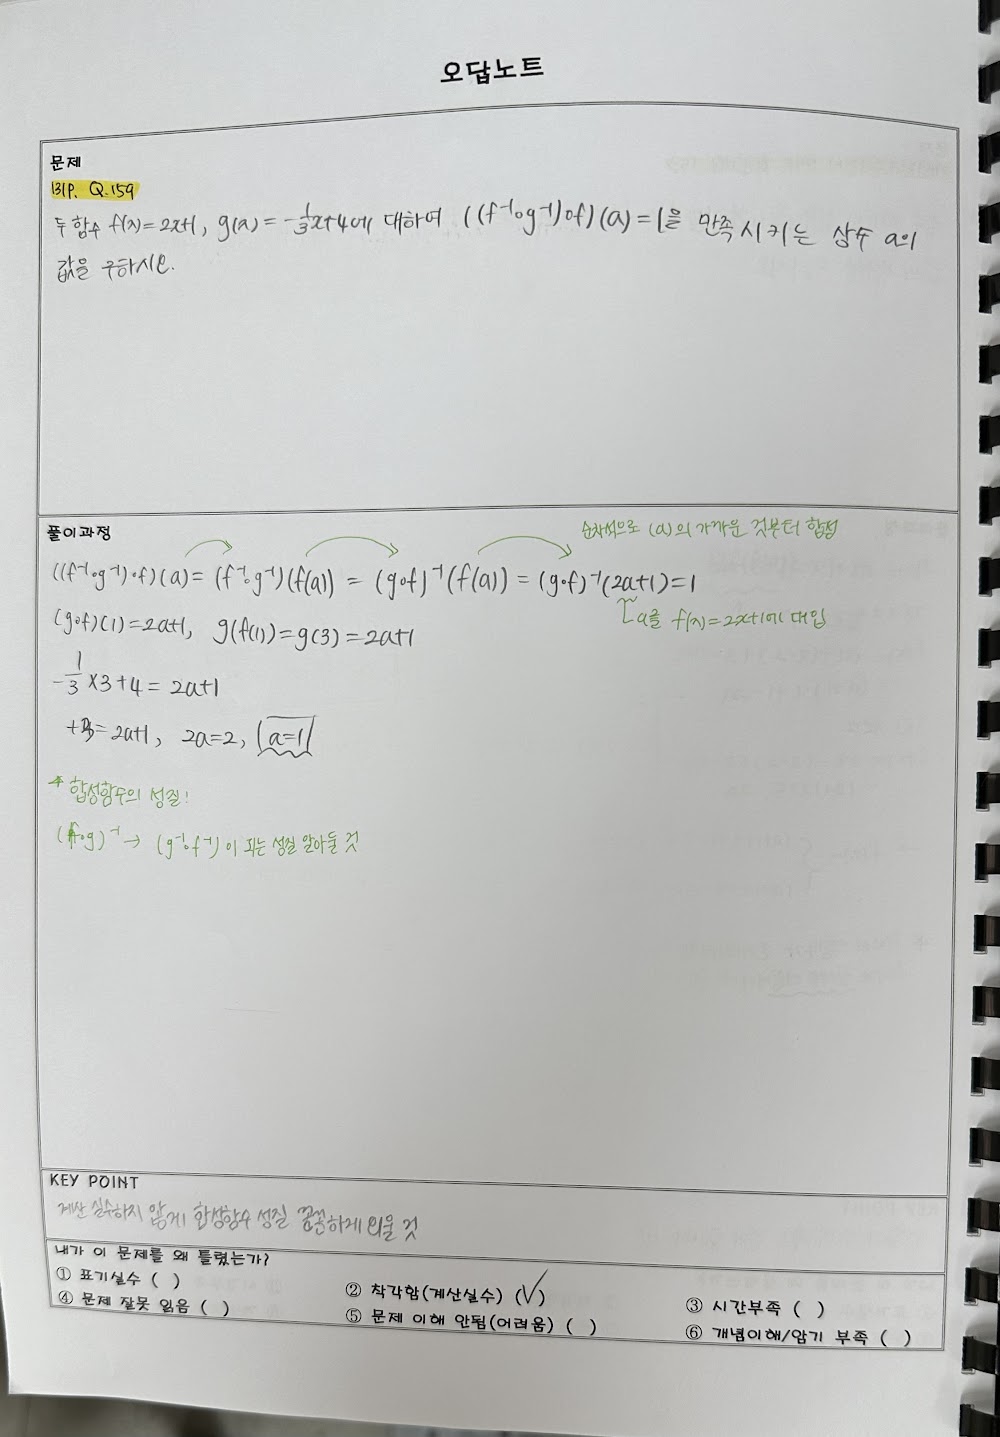 오답노트
문제
131P. Q.159
두 함수 f(x)=2x+1, g(x)=-1/3x+4에 대하여 ((f⁻¹∘g⁻¹)∘f)(a)=1을 만족시키는 상수 a의
값을 구하시오.
풀이과정
순차적으로 (a)의 가까운 것부터 합성
((f⁻¹∘g⁻¹)∘f)(a)=(f⁻¹∘g⁻¹)(f(a))=(g∘f)⁻¹(f(a))=(g∘f)⁻¹(2a+1)=1
a를 f(x)=2x+1에 대입
(g∘f)(1)=2a+1, g(f(1))=g(3)=2a+1
-1/3×3+4=2a+1
+3=2a+1, 2a=2, a=1
* 합성함수의 성질!
(f∘g)⁻¹→(g⁻¹∘f⁻¹)이 되는 성질 알아둘 것
KEY POINT
계산 실수하지 않게 합성함수 성질 꼼꼼하게 외울 것
내가 이 문제를 왜 틀렸는가?
① 표기실수 ( ) ② 착각함(계산실수) (✓) ③ 시간부족 ( )
④ 문제 잘못 읽음 ( ) ⑤ 문제 이해 안됨(어려움) ( ) ⑥ 개념이해/암기 부족 ( )